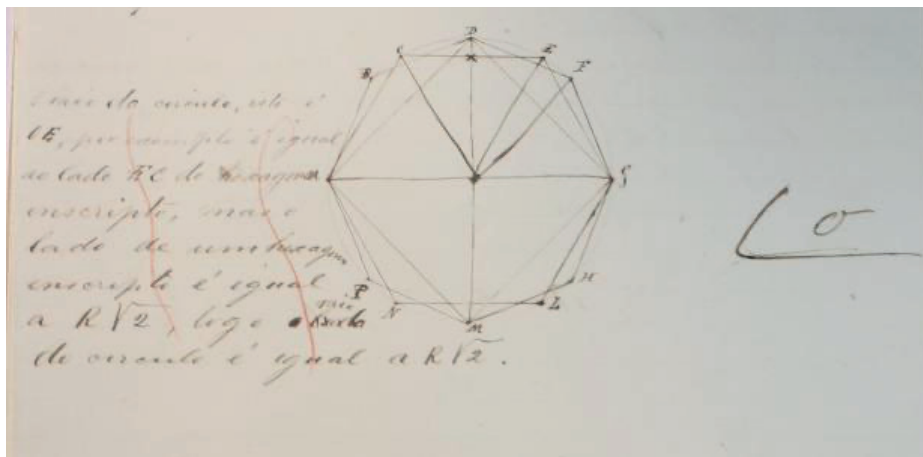 raio do circulo, isto é
CE, por exemplo é igual
ao lado EC do hexagono
inscripto, mas o
lado de um hexagono
inscripto é igual
a R√2, logo o raio
do circulo é igual a R√2.
D
C
E
B
F
G
H
P
L
N
M
o